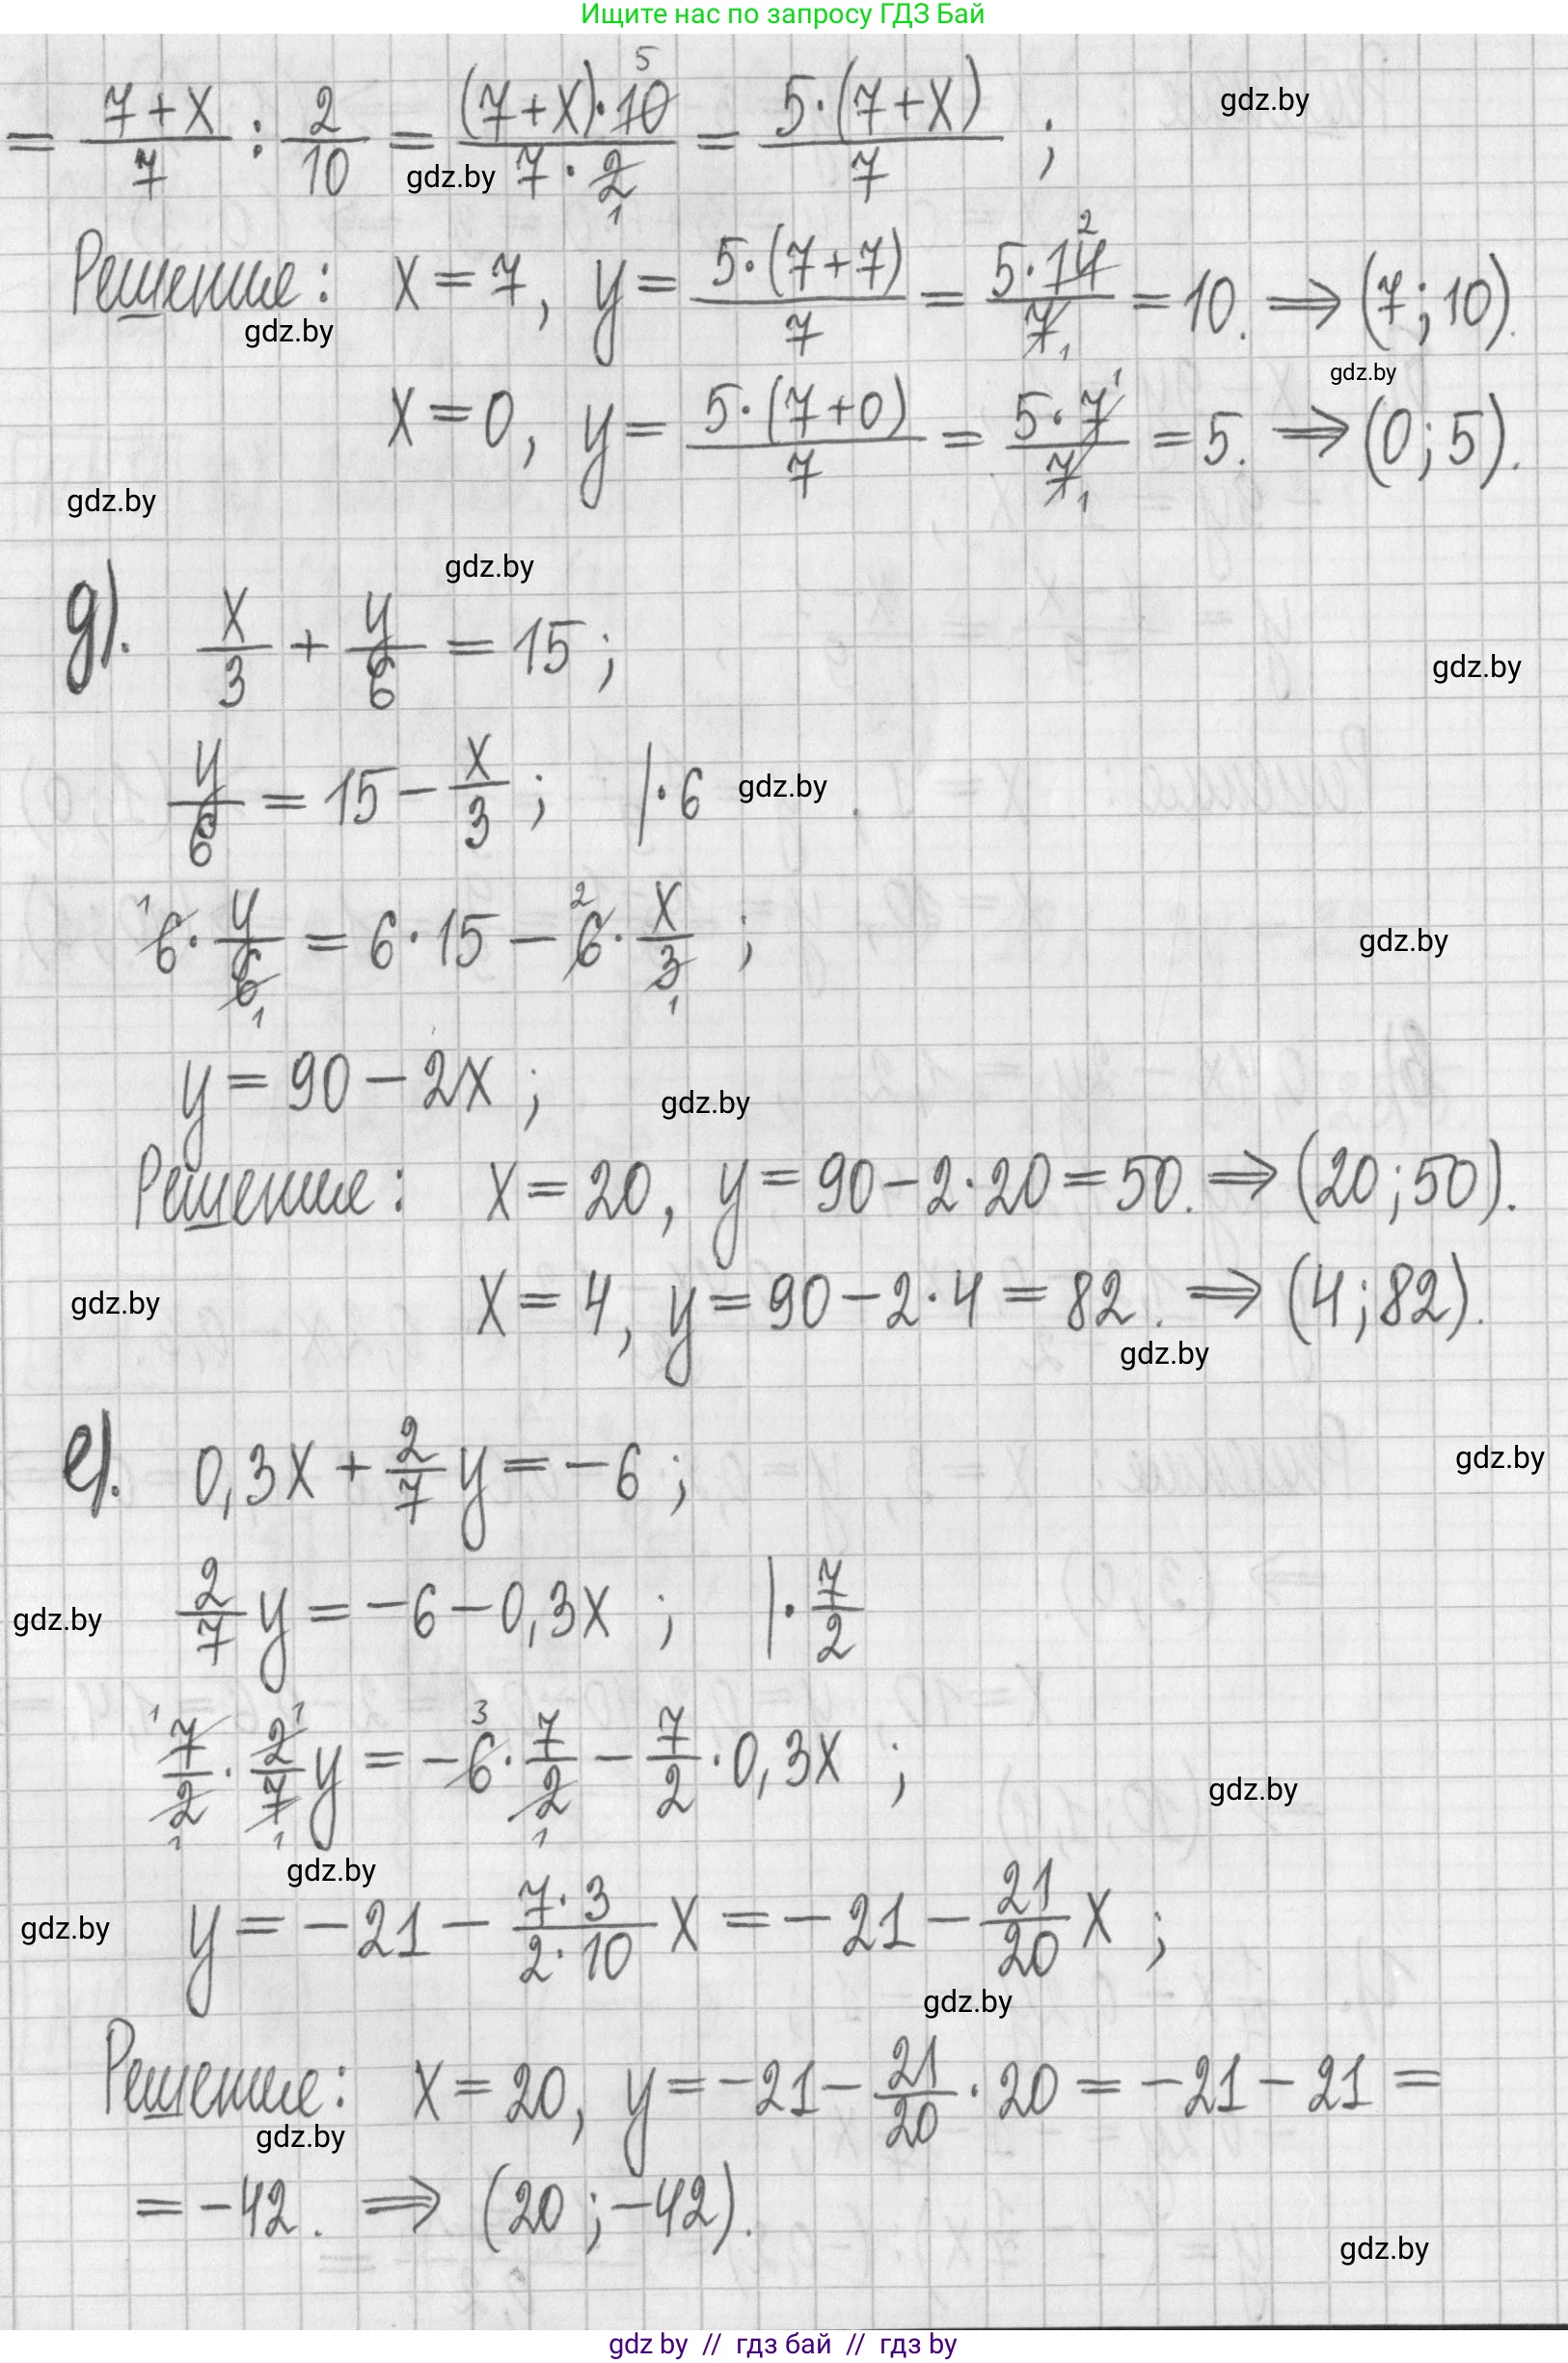 Ищите нас по запросу ГДЗ Бай
= (7+x)/7 : 2/10 = ((7+x)·10 5)/(7·2 1) = (5·(7+x))/7 ;
gdz.by
gdz.by
Решение: x = 7, y = (5·(7+7))/7 = (5·14 2)/(7 1) = 10. ⇒ (7; 10).
gdz.by
gdz.by
x = 0, y = (5·(7+0))/7 = (5·7 1)/(7 1) = 5. ⇒ (0; 5).
gdz.by
gdz.by
д). x/3 + y/6 = 15 ;
gdz.by
y/6 = 15 - x/3 ; |·6
gdz.by
1 6 · y/(6 1) = 6·15 - 2 6 · x/(3 1) ;
gdz.by
y = 90 - 2x ;
gdz.by
Решение: x = 20, y = 90 - 2·20 = 50. ⇒ (20; 50).
x = 4, y = 90 - 2·4 = 82. ⇒ (4; 82).
gdz.by
gdz.by
е). 0,3x + 2/7 y = -6 ;
gdz.by
2/7 y = -6 - 0,3x ; |· 7/2
gdz.by
(1 7)/(2 1) · (2 1)/(7 1) y = -6 3 · 7/(2 1) - 7/2 · 0,3x ;
gdz.by
gdz.by
y = -21 - (7·3)/(2·10) x = -21 - 21/20 x ;
gdz.by
gdz.by
Решение: x = 20, y = -21 - 21/20 · 20 = -21 - 21 =
gdz.by
= -42. ⇒ (20; -42).
gdz.by
gdz by // гдз бай // гдз by